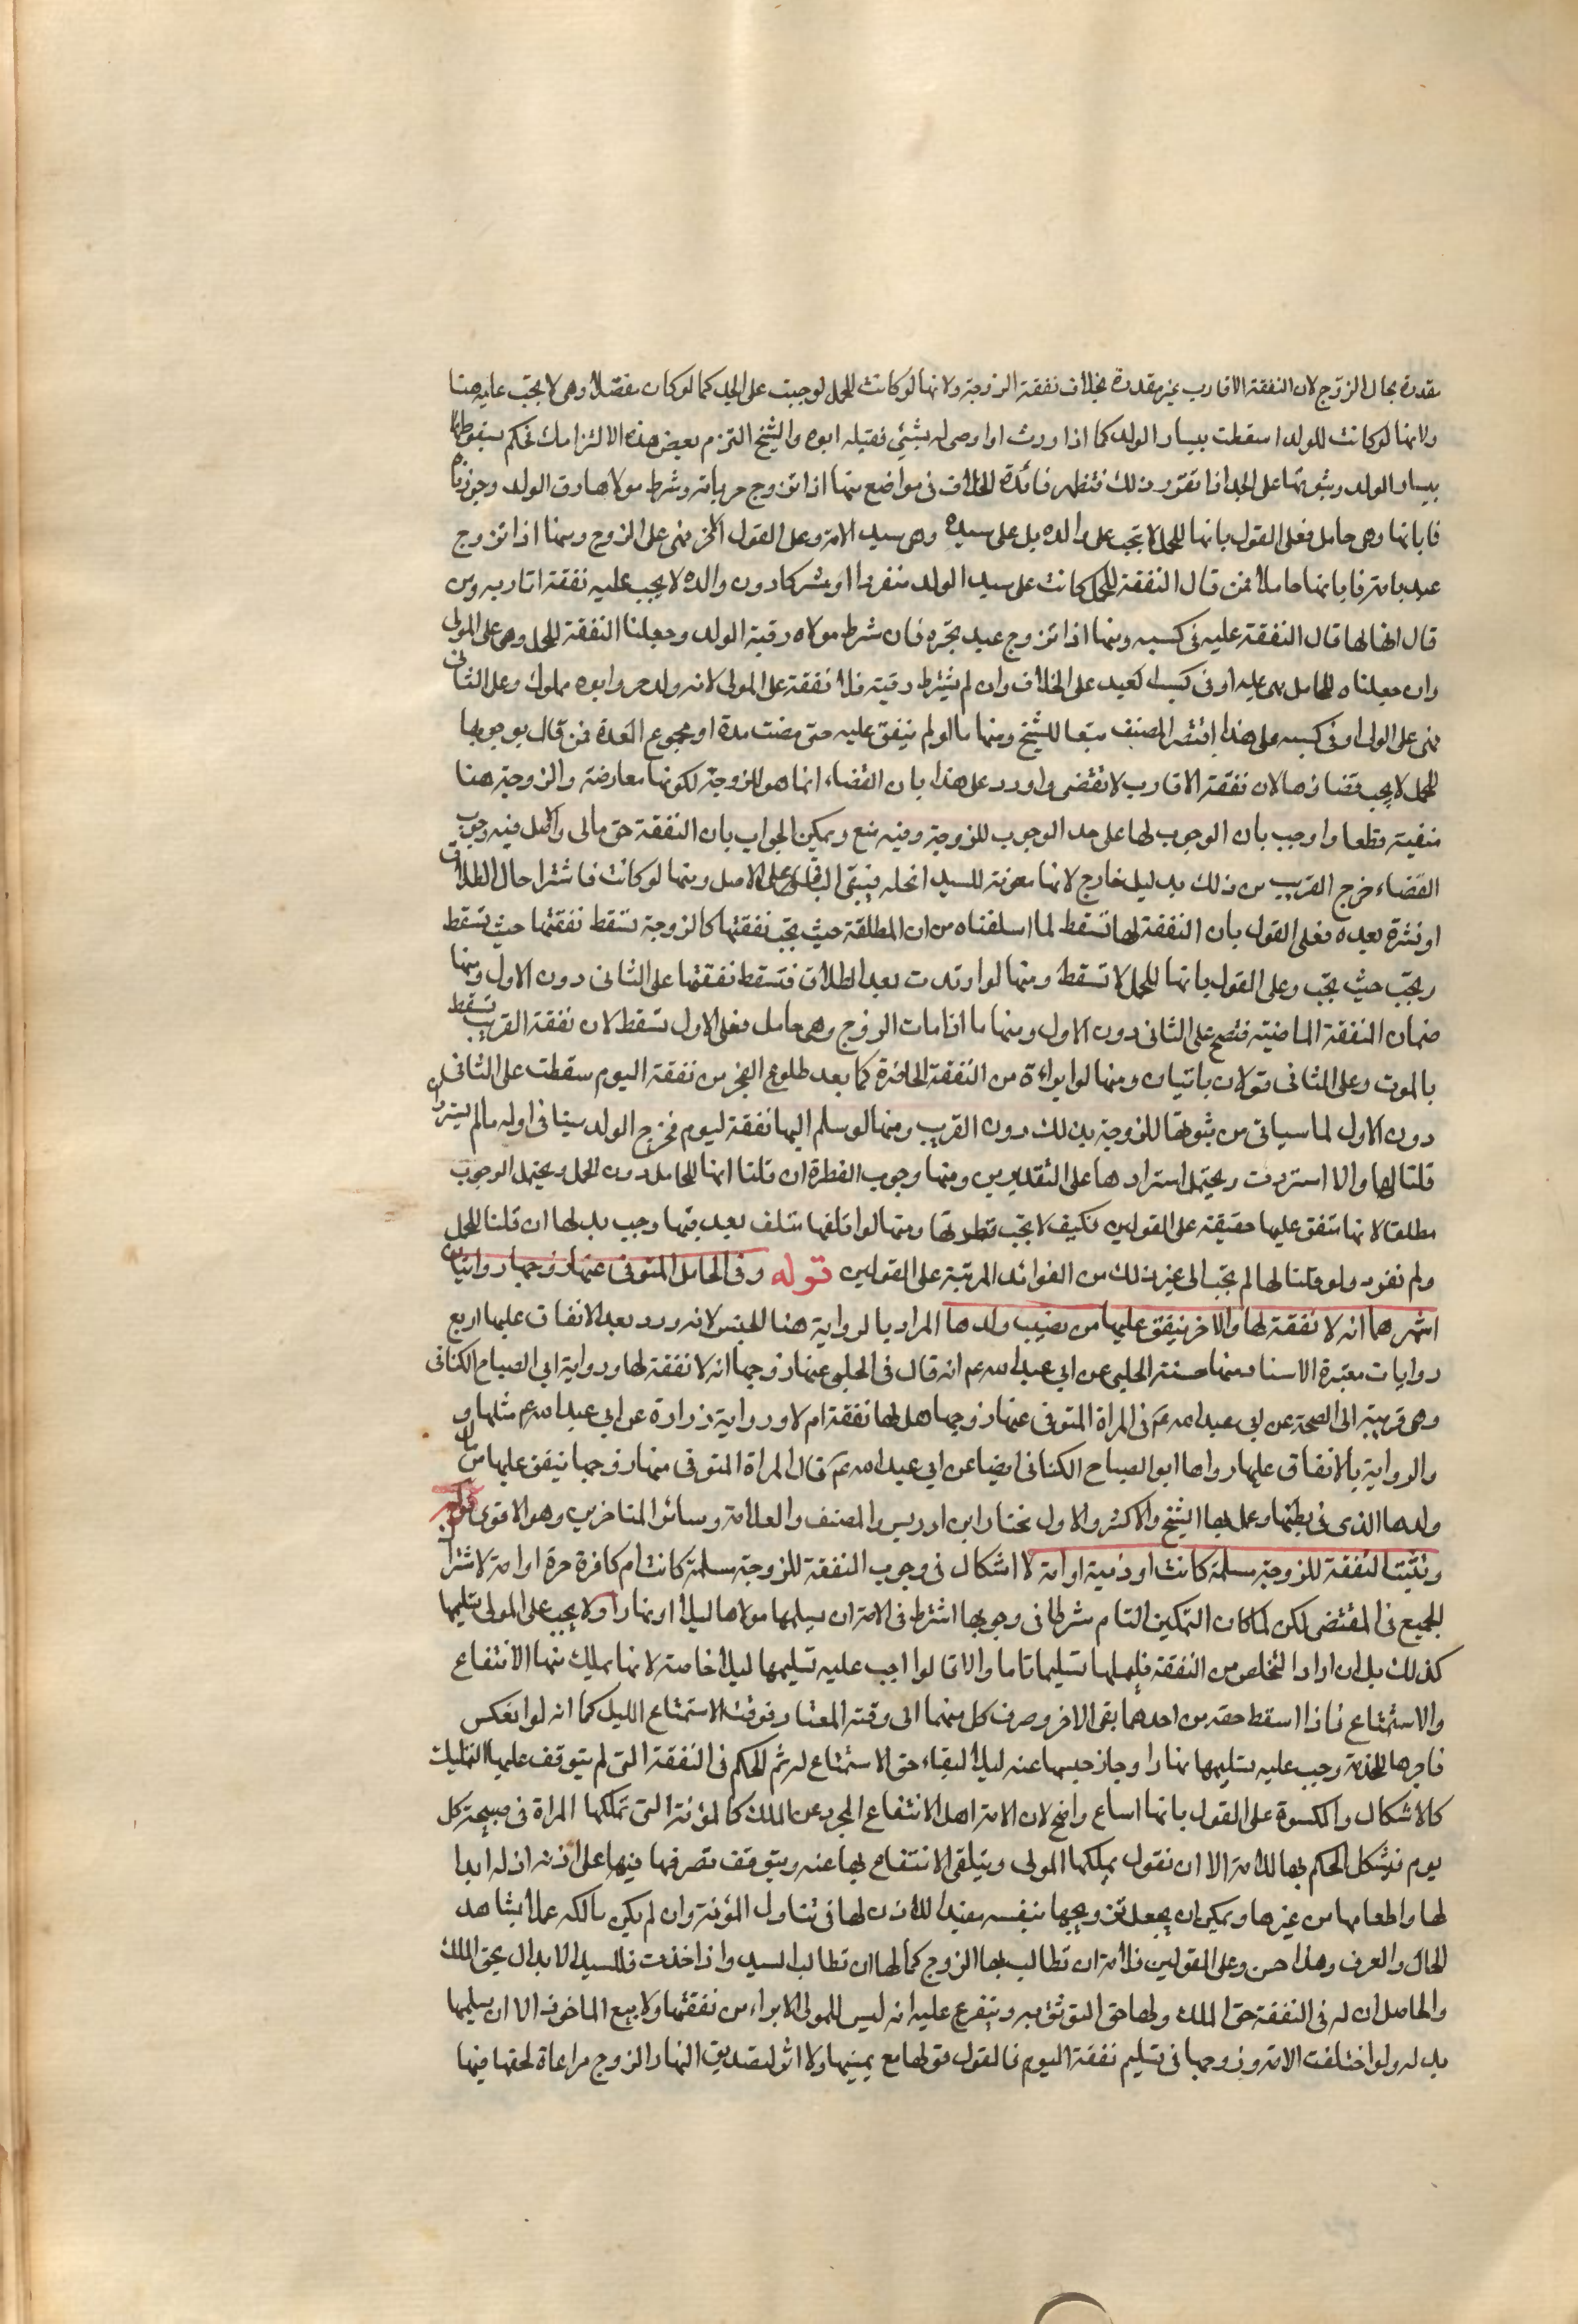 مقدرة بحال الزوج لان النفقة الاقارب غير مقدرة بخلاف نفقة الزوجة ولانها لو كانت للحمل لوجبت على الجد كما لو كان منفصلا وهى لا تجب عليه هنا
ولانها لو كانت للولد اسقطت بيسار الولد كما اذا ورث او اوصى له بشئ فقبله ابوه والشيخ التزم بعض هذه الالتزامات فحكم بسقوطها
بيسار الولد وثبوتها على الجد اذا تقرر ذلك فتظهر فائدة الخلاف فى مواضع منها اذا تزوج حر بامة وشرط مولاها رق الولد وجوزناه
فابانها وهى حامل فعلى القول بانها للحمل لا تجب على والده بل على سيده وهى سيد الامة وعلى القول الاخر فهى على الزوج ومنها اذا تزوج
عبد بامة فابانها حاملا فمن قال النفقة للحمل كانت على سيد الولد منفردا او مشتركا دون والده لا يجب عليه نفقة اقاربه ومن
قال انها لها قال النفقة عليه فى كسبه ومنها اذا تزوج عبد بحرة فان شرط مولاه رقية الولد وجعلنا النفقة للحمل وهى على المولى
وان جعلناه للحامل فهى عليه او فى كسب العبد على الخلاف وان لم يشترط رقيته فلا نفقة على المولى لانه ولد حر وابوه مملوك وعلى الثانى
فهى على المولى او فى كسبه على هذا اقتصر المصنف تبعا للشيخ ومنها ما لو لم ينفق عليه حتى مضت مدة او مجموع العدة فمن قال بوجوبها
للحمل لا يجب قضاؤها لان نفقة الاقارب لا تقضى واورد على هذا بان القضاء انما هو للزوجة لكونها معاوضة والزوجية هنا
منفية قطعا واوجب بان الوجوب لها على حد الوجوب للزوجة وفيه منع ويمكن الجواب بان النفقة حق مالى والاصل فيه وجوب
القضاء خرج القريب من ذلك بدليل خارج لانها معونة للسيد انخله فيبقى الباقى على الاصل ومنها لو كانت ناشزا حال الطلاق
او نشزت بعده فعلى القول بان النفقة لها تسقط لما اسلفناه من ان المطلقة حيث تجب نفقتها كالزوجة تسقط نفقتها حيث تسقط
وتجب حيث تجب وعلى القول بانها للحمل لا تسقط ومنها لو ارتدت بعد الطلاق فتسقط نفقتها على الثانى دون الاول ومنها
ضمان النفقة الماضية فتصح على الثانى دون الاول ومنها ما اذا مات الزوج وهى حامل فعلى الاول تسقط لان نفقة القريب تسقط
بالموت وعلى الثانى قولان ياتيان ومنها لو ابراءة من النفقة الحاضرة كما بعد طلوع الفجر من نفقة اليوم سقطت على الثانى
دون الاول لما سياتى من ثبوتها للزوجة بذلك دون القريب ومنها لو سلم اليها نفقة ليوم فخرج الولد ميتا فى اوله ما لم يسترد ان
قلنا لها والا استردت ويحتمل استردادها على التقديرين ومنها وجوب الفطرة ان قلنا انها للحامل دون الحمل ويحتمل الوجوب
مطلقا لانها منفق عليها حقيقة على القولين فكيف لا تجب فطرتها ومنها لو اتلفها متلف بعد قبضها وجب بدلها ان قلنا للحمل
ولم نفرد ولو قلنا لها لم تجب الى غير ذلك من الفوائد المرتبة على القولين قوله وفى الحامل المتوفى عنها زوجها روايتان
اشهرهما انه لا نفقة لها والاخر ينفق عليها من نصيب ولدها المراد بالرواية هنا الجنس لانه ورد بعد الانفاق عليها اربع
روايات معتبرة الاسناد منها حسنة الحلبى عن ابى عبد الله عم انه قال فى الحبلى عنها زوجها انه لا نفقة لها ورواية ابى الصباح الكنانى
وهى قريبة الى الصحة عن ابى عبد الله عم فى المراة المتوفى عنها زوجها هل لها نفقة ام لا ورواية زرارة عن ابى عبد الله عم مثلها و
والرواية بالانفاق عليها رواها ابو الصباح الكنانى ايضا عن ابى عبد الله عم قال المراة المتوفى عنها زوجها ينفق عليها من مال
ولدها الذى فى بطنها وعمل بها الشيخ والاكثر والاول مختار ابن ادريس والمصنف والعلامة وسائر المتاخرين وهو الاقوى قوله
وتثبت النفقة للزوجة مسلمة كانت او ذمية او امة لا اشكال فى وجوب النفقة للزوجة مسلمة كانت ام كافرة حرة او امة لاشتراك
الجميع فى المقتضى لكن لما كان التمكين التام شرطا فى وجوبها اشترط فى الامة ان يسلمها مولاها ليلا او نهارا ولا يجب على المولى تسليمها
كذلك بل ان اراد التخلص من النفقة فليسلمها تسليما تاما والا قالوا اجب عليه تسليمها ليلا خاصة لانها يملك منها الانتفاع
والاستمتاع فاذا اسقط حقه من احدهما بقى الاخر وصرف كل منهما الى وقته المعتاد فوقت الاستمتاع الليل كما انه لو انعكس
فاجرها للخدمة وجب عليه تسليمها نهارا وجاز حبسها عنه ليلا لبقاء حق الاستمتاع له ثم الحكم فى النفقة التى لم يتوقف عليها التمليك
كالاشكال والكسوة على القول بانها امتاع واضح لان الامة اهل الانتفاع المجرد عن الملك كالمؤنة التى تملكها المراة فى صبيحة كل
يوم فيشكل الحكم بها للامة الا ان نقول يملكها المولى ويتلقى الانتفاع بها عنه ويتوقف تصرفها فيها على اذنه اذ له ابدا
لها واطعامها من غيرها ويمكن ان يجعل تزويجها بنفسه مفيدا للاذن لها فى تناول المؤنة وان لم يكن مالكه عملا بشاهد
الحال والعرف وهذا حسن وعلى القولين فللامة ان تطالب بها الزوج كما لها ان تطالب السيد واذا اخذت فللسيد الابدال بحق الملك
والحاصل ان له فى النفقة حق الملك ولها حق التوثق به ويتفرع عليه انه ليس للمولى الابراء من نفقتها ولا بيع الماخوذ الا ان يسلمها
بدله ولو اختلفت الامة وزوجها فى تسليم نفقة اليوم فالقول قولها مع يمينها ولا اثر لتصديق النهار الزوج مراعاة لحقها فيها